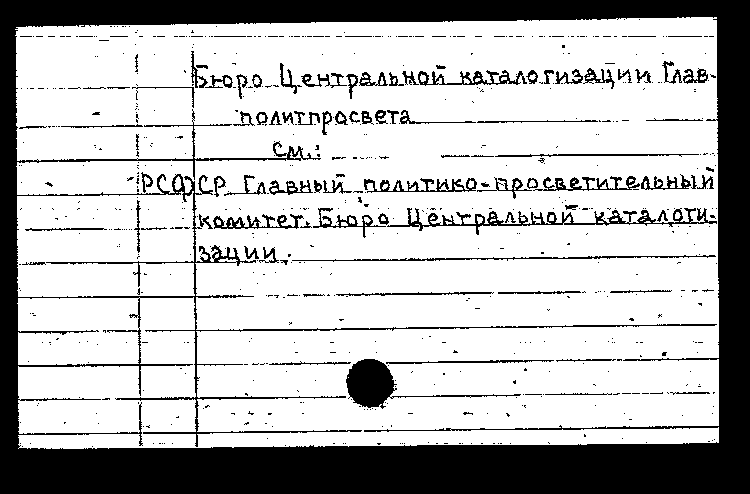 Бюро Центральной каталогизации Глав-
политпросвета
см.:
РСФСР. Главный политико-просветительный
комитет. Бюро Центральной каталоги-
зации.